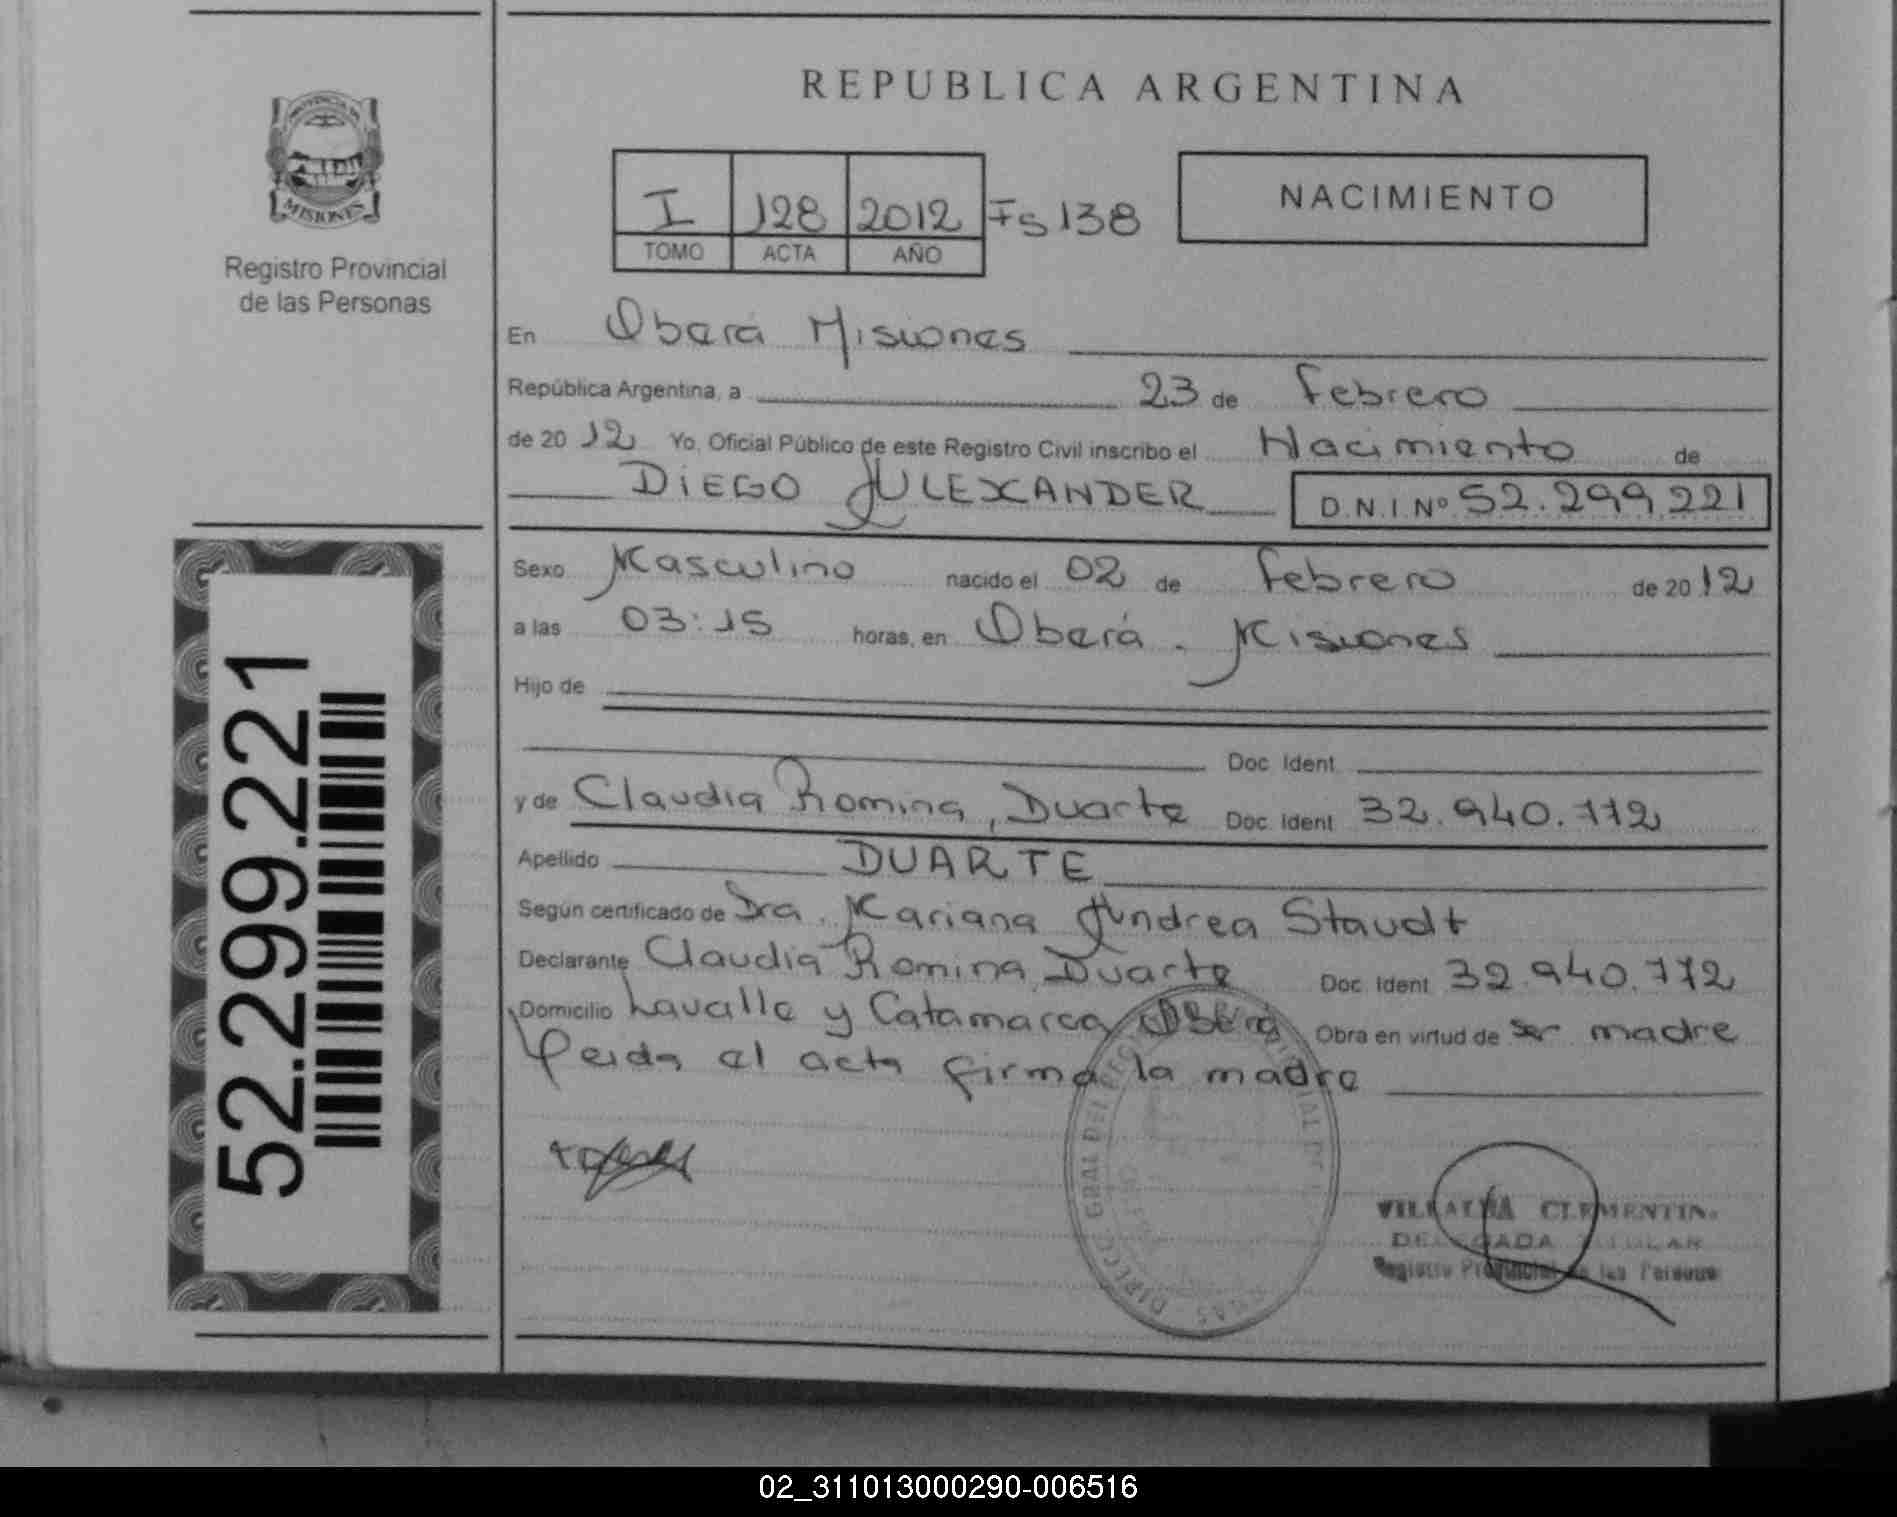 REPUBLICA ARGENTINA
PROVINCIA DE
MISIONES
Registro Provincial
de las Personas
I 128 2012 Fs 138
TOMO ACTA AÑO
NACIMIENTO
En Oberá Misiones
República Argentina, a 23 de Febrero
de 20 12 Yo, Oficial Público de este Registro Civil inscribo el Nacimiento de
DIEGO ALEXANDER D.N.I.Nº 52.299.221
Sexo Masculino nacido el 02 de Febrero de 20 12
a las 03:15 horas, en Oberá - Misiones
Hijo de
Doc. Ident.
y de Claudia Romina, Duarte Doc. Ident. 32.940.772
Apellido DUARTE
Según certificado de Dra. Mariana Andrea Staudt
Declarante Claudia Romina Duarte Doc. Ident. 32.940.772
Domicilio Lavalle y Catamarca Oberá Obra en virtud de ser madre
Leida el acta firma la madre
52.299.221
GRAL DEL
VILLALBA CLEMENTIN
DELEGADA TITULAR
Registro Provincial de las Personas
02_311013000290-006516